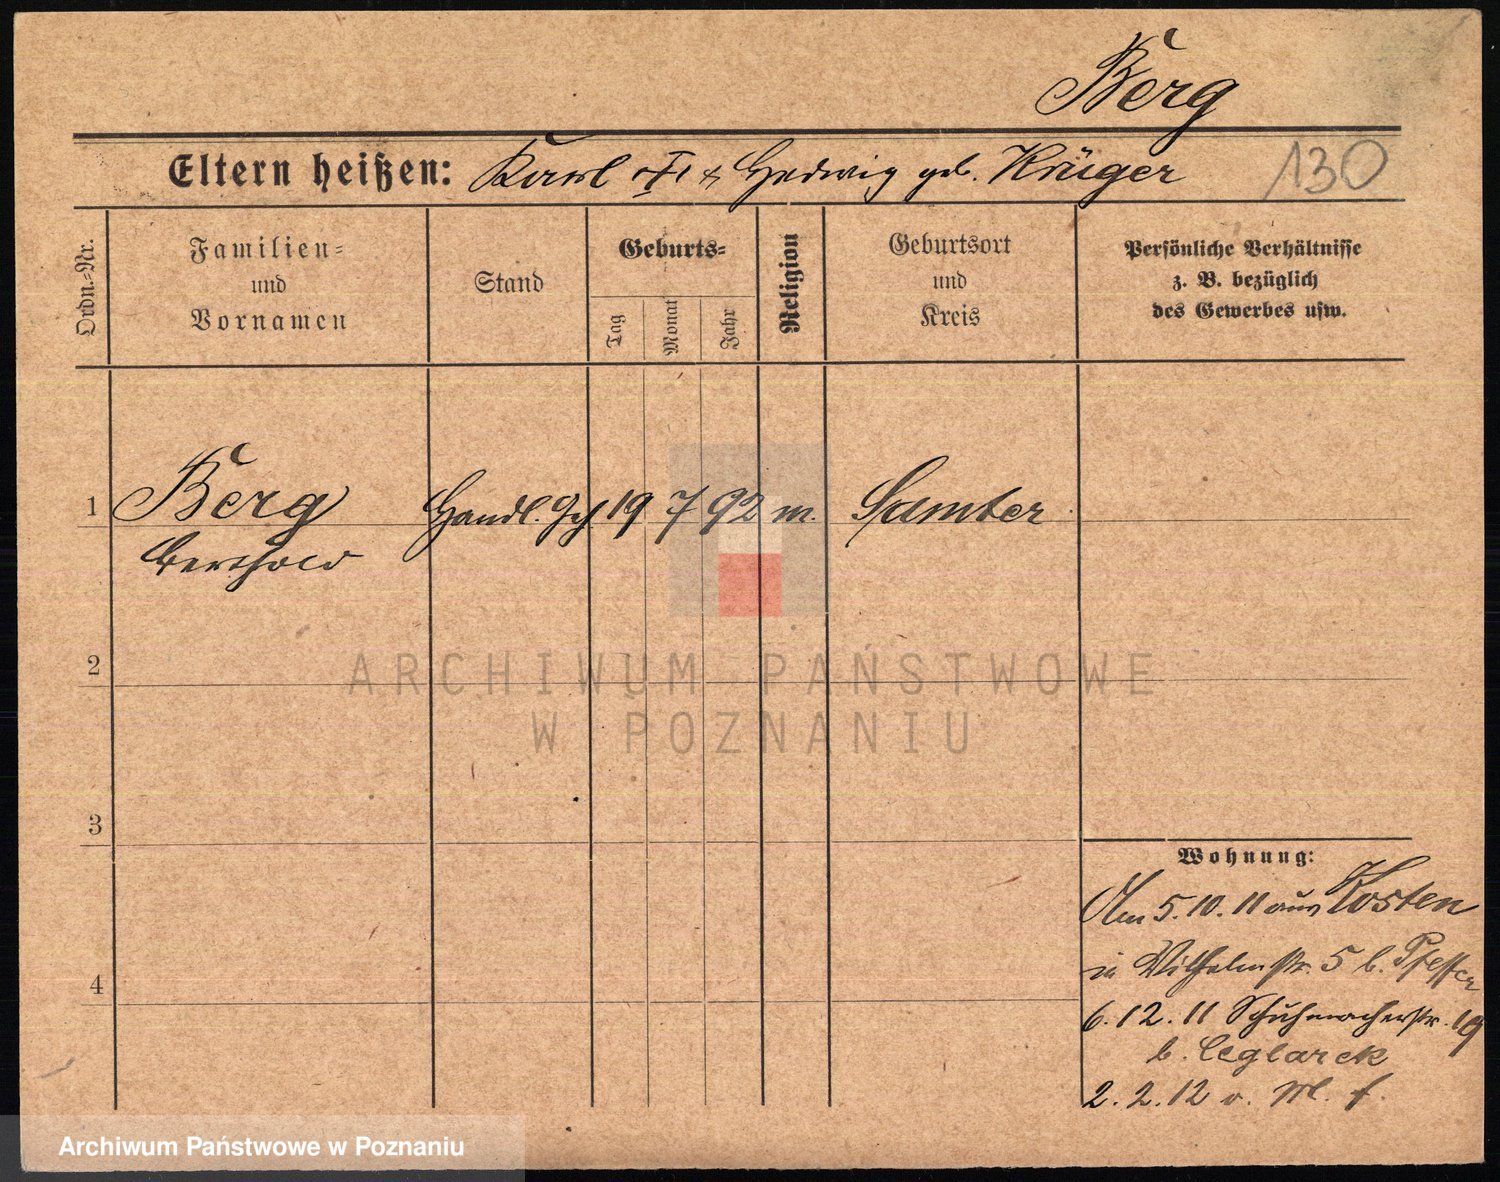 Berg
Eltern heißen: Karl † & Hedwig geb. Krüger 130
Ordn.-Nr.
Familien-
und
Vornamen
Stand
Geburts-
Tag
Monat
Jahr
Religion
Geburtsort
und
Kreis
Persönliche Verhältnisse
z. B. bezüglich
des Gewerbes usw.
1 Berg Handl. Geh 19 7 92 m. Samter
Berthold
2
3
4
Wohnung:
Am 5.10.11 aus Kosten
in Wilhelmstr. 5 b. Pfeffer
6.12.11 Schuhmacherstr. 19
b. Ceglarek
2.2.12 v. M. f.
ARCHIWUM PAŃSTWOWE
W POZNANIU
Archiwum Państwowe w Poznaniu